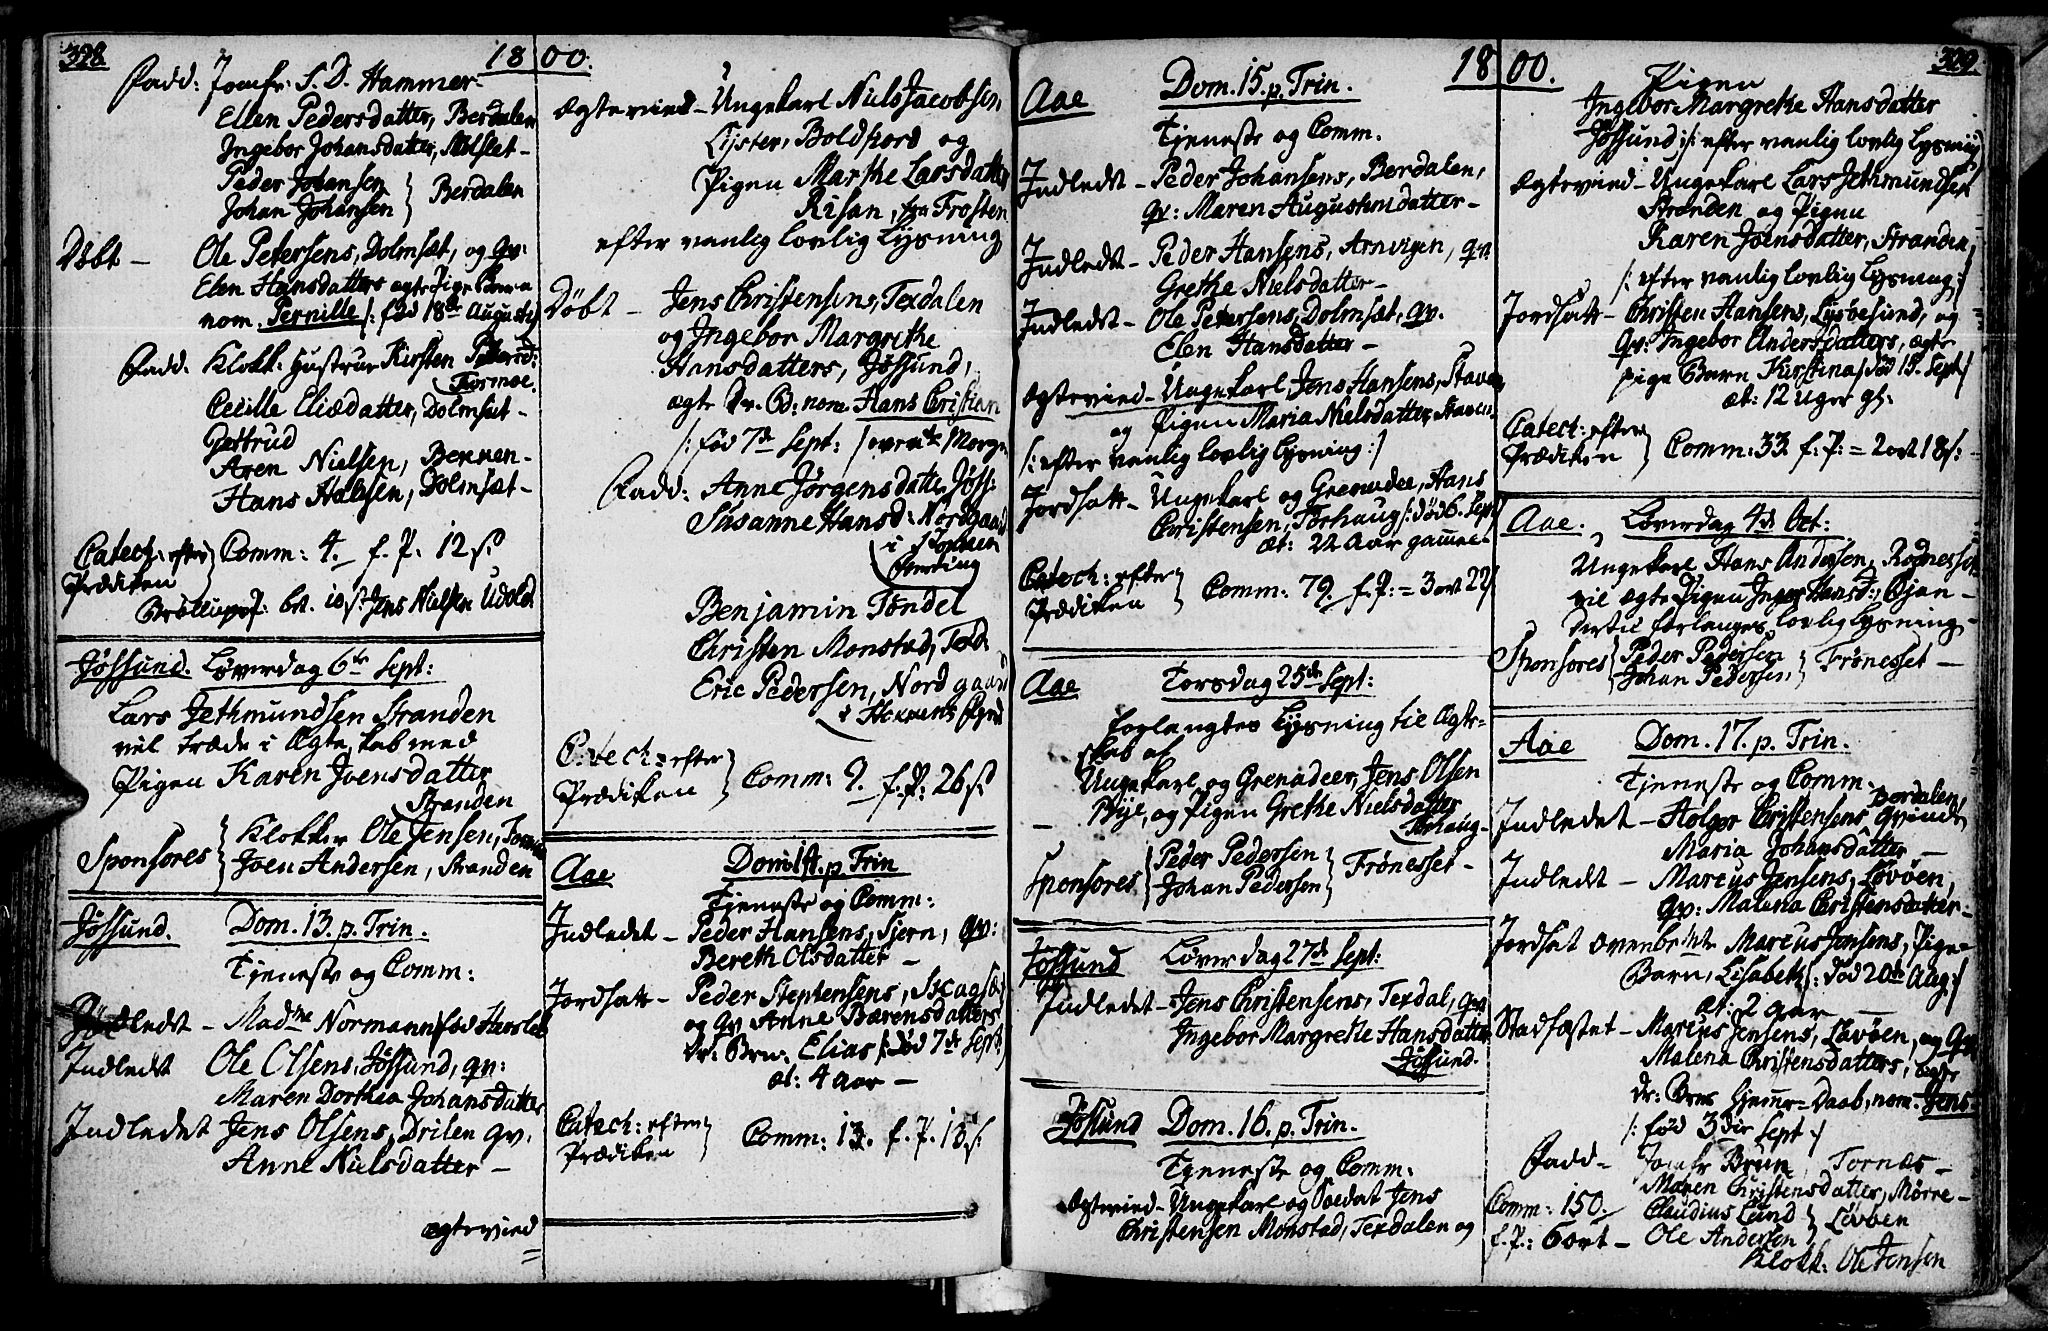 328
1800.
Fadd: Jomfr: S. D. Hammer-
Ellen Pedersdatter, Berdalen
Ingebor Johansdatter,
Peder Johansen
Johan Johansen } Berdalen
Døbt - Ole Petersens, Dolmsæt, og qv:
Elen Hansdatters ægte Pige Barn
nom. Pernille /: fød 18de Augusti /
Fadd. Klokk: Hustrue Kirsten Pedersd:
Tormoe.
Cecilie Eliædatter, Dolmsæt-
Gertrud
Aren Nielsen, Bennen-
Hans Halsen, Dolmsæt-
Catech: efter
Prædiken } Comm: 4. f. P. 12 s.
Brøllupsf: bet. 10 s: Jens Nielsen Udold.
Jøssund. Løverdag 6te Sept:
Lars Jethmundsen Stranden
vil træde i Ægteskab med
Pigen Karen Joensdatter
Stranden
Sponsores { Klokker Ole Jensen,
Joen Andersen, Stranden
Jøssund. Dom. 13. p. Trin.
Tjeneste og Comm:
Indledt - Madme Normann fød
Indledt Ole Olsens, Jøssund, qv:
Maren Dorthea Johansdatter
Indledet Jens Olsens, Drilen qv.
Anne Nielsdatter -
Ægtevied
Ægteviet - Ungekarl Niels Jacobsen,
Lyster, Boldfiord og
Pigen Marthe Larsdatter
Risan, fra Frosten
efter vanlig lovlig Lysning
Døbt - Jens Christensens, Texdalen
og Ingebor Margrethe
Hansdatters, Jøssund,
ægte Dr. B: nom. Hans Christian
/: fød 7de Sept:
Fadd: Anne Jørgensdatter Jøss:
Susanne Hansd: Nordgaard
i Stoksen
Benjamin Tøndel
Christen Monstad, Texd.
Eric Pedersen, Nordgaard
Catech: efter
Prædiken } Comm: 9. f. P: 26 s.
Aae Dom. 14. p. Trin
Tjeneste og Comm:
Indledet - Peder Hansens, Tjern, qv:
Bereth Olsdatter -
Jordsatt - Peder Stephensens,
og qv Anne Bærensdatters
Dr: Brn. Elias /: død 7de Sept:
æt: 4 Aar -
Catech: efter
Prædiken } Comm: 13. f. P. 18 s.
329
1800.
Aae Dom. 15. p. Trin.
Tjeneste og Comm.
Indledt - Peder Johansens, Berdalen,
qv: Maren Augustinidatter -
Indledt - Peder Hansens, Arnvigen, qv:
Grethe Nielsdatter -
Indledt - Ole Petersens, Dolmsæt, qv.
Elen Hansdatter -
Ægteviet - Ungekarl, Jens Hansens, Staven
og Pigen Maria Nielsdatter, Staven.
/: efter vanlig lovlig Lysning :/
Jordsatt - Ungekarl og Grenadeer, Hans
Christensen, Torhaug /: død 6. Sept
æt: 22 Aar gammel -
Catech: efter
Prædiken } Comm: 79. f. P: = 3 ort 22 s
Aae Torsdag 25de Sept:
Forlangtes Lysning til Ægte-
skab af
Ungekarl og Grenadeer, Jens Olsen
Bye, og Pigen Grethe Nielsdatter
Torhaug-
Sponsores { Peder Pedersen
Johan Pedersen } Frønesset -
Jøssund Løverdag 27de Sept:
Indledet - Jens Christensens, Texdal, qv:
Ingebor Margrethe Hansdatter
Jøssund.
Jøssund Dom. 16. p. Trin.
Tjeneste og Comm:
Ægteviet - Ungekarl og Soldat Jens
Christensen Monstad, Texdalen og
Pigen
Ingebor Margrethe Hansdatter
Jøssund, /: efter vanlig lovlig Lysning
Ægteviet - Ungekarl Lars Jethmundsen
Stranden og Pigen
Karen Joensdatter, Stranden,
/: efter vanlig lovlig Lysning :/
Jordsatt - Christen Hansens, Lysøesund, og
qv: Ingebor Andersdatters, ægte
pige Barn Kirstina /: død 15. Sept:/
æt: 12 Uger gl:
Catech: efter
Prædiken } Comm: 33. f. P: = 2 ort 18 s: -
Aae. Løverdag 4de Oct:
Ungekarl Hans Andersen,
vil ægte Pigen Inger Hansd:, Bjen-
Dertil forlanges lovlig Lysning.
Sponsores { Peder Pedersen
Johan Pedersen, } Frønesset -
Aae Dom. 17. p. Trin.
Tjeneste og Comm.
Indledet - Holger Christensens Berdalen qvinde
Maria Johansdatter -
Indledet - Marcus Jensens, Løvøen,
qv: Malena Christensdatter -
Jordsat ovenbemte Marcus Jensens, Pige-
Barn, Lisabeth /: død 20de Aug:/
æt: 2 Aar -
Stadfæstet - Marcus Jensens, Løvøen, og qv:
Malena Christensdatters, ægte
dr: Brns Hjemme-Daab, nom: Jens
/: fød 3die Sept :/
Fadd - Jomfr Brun, Tornæs -
Maren Christensdatter, Mørre -
Comm: 150. Claudius Lund
f. P.: 6 ort - Ole Andersen } Løvøen
Klokk: Ole Jensen